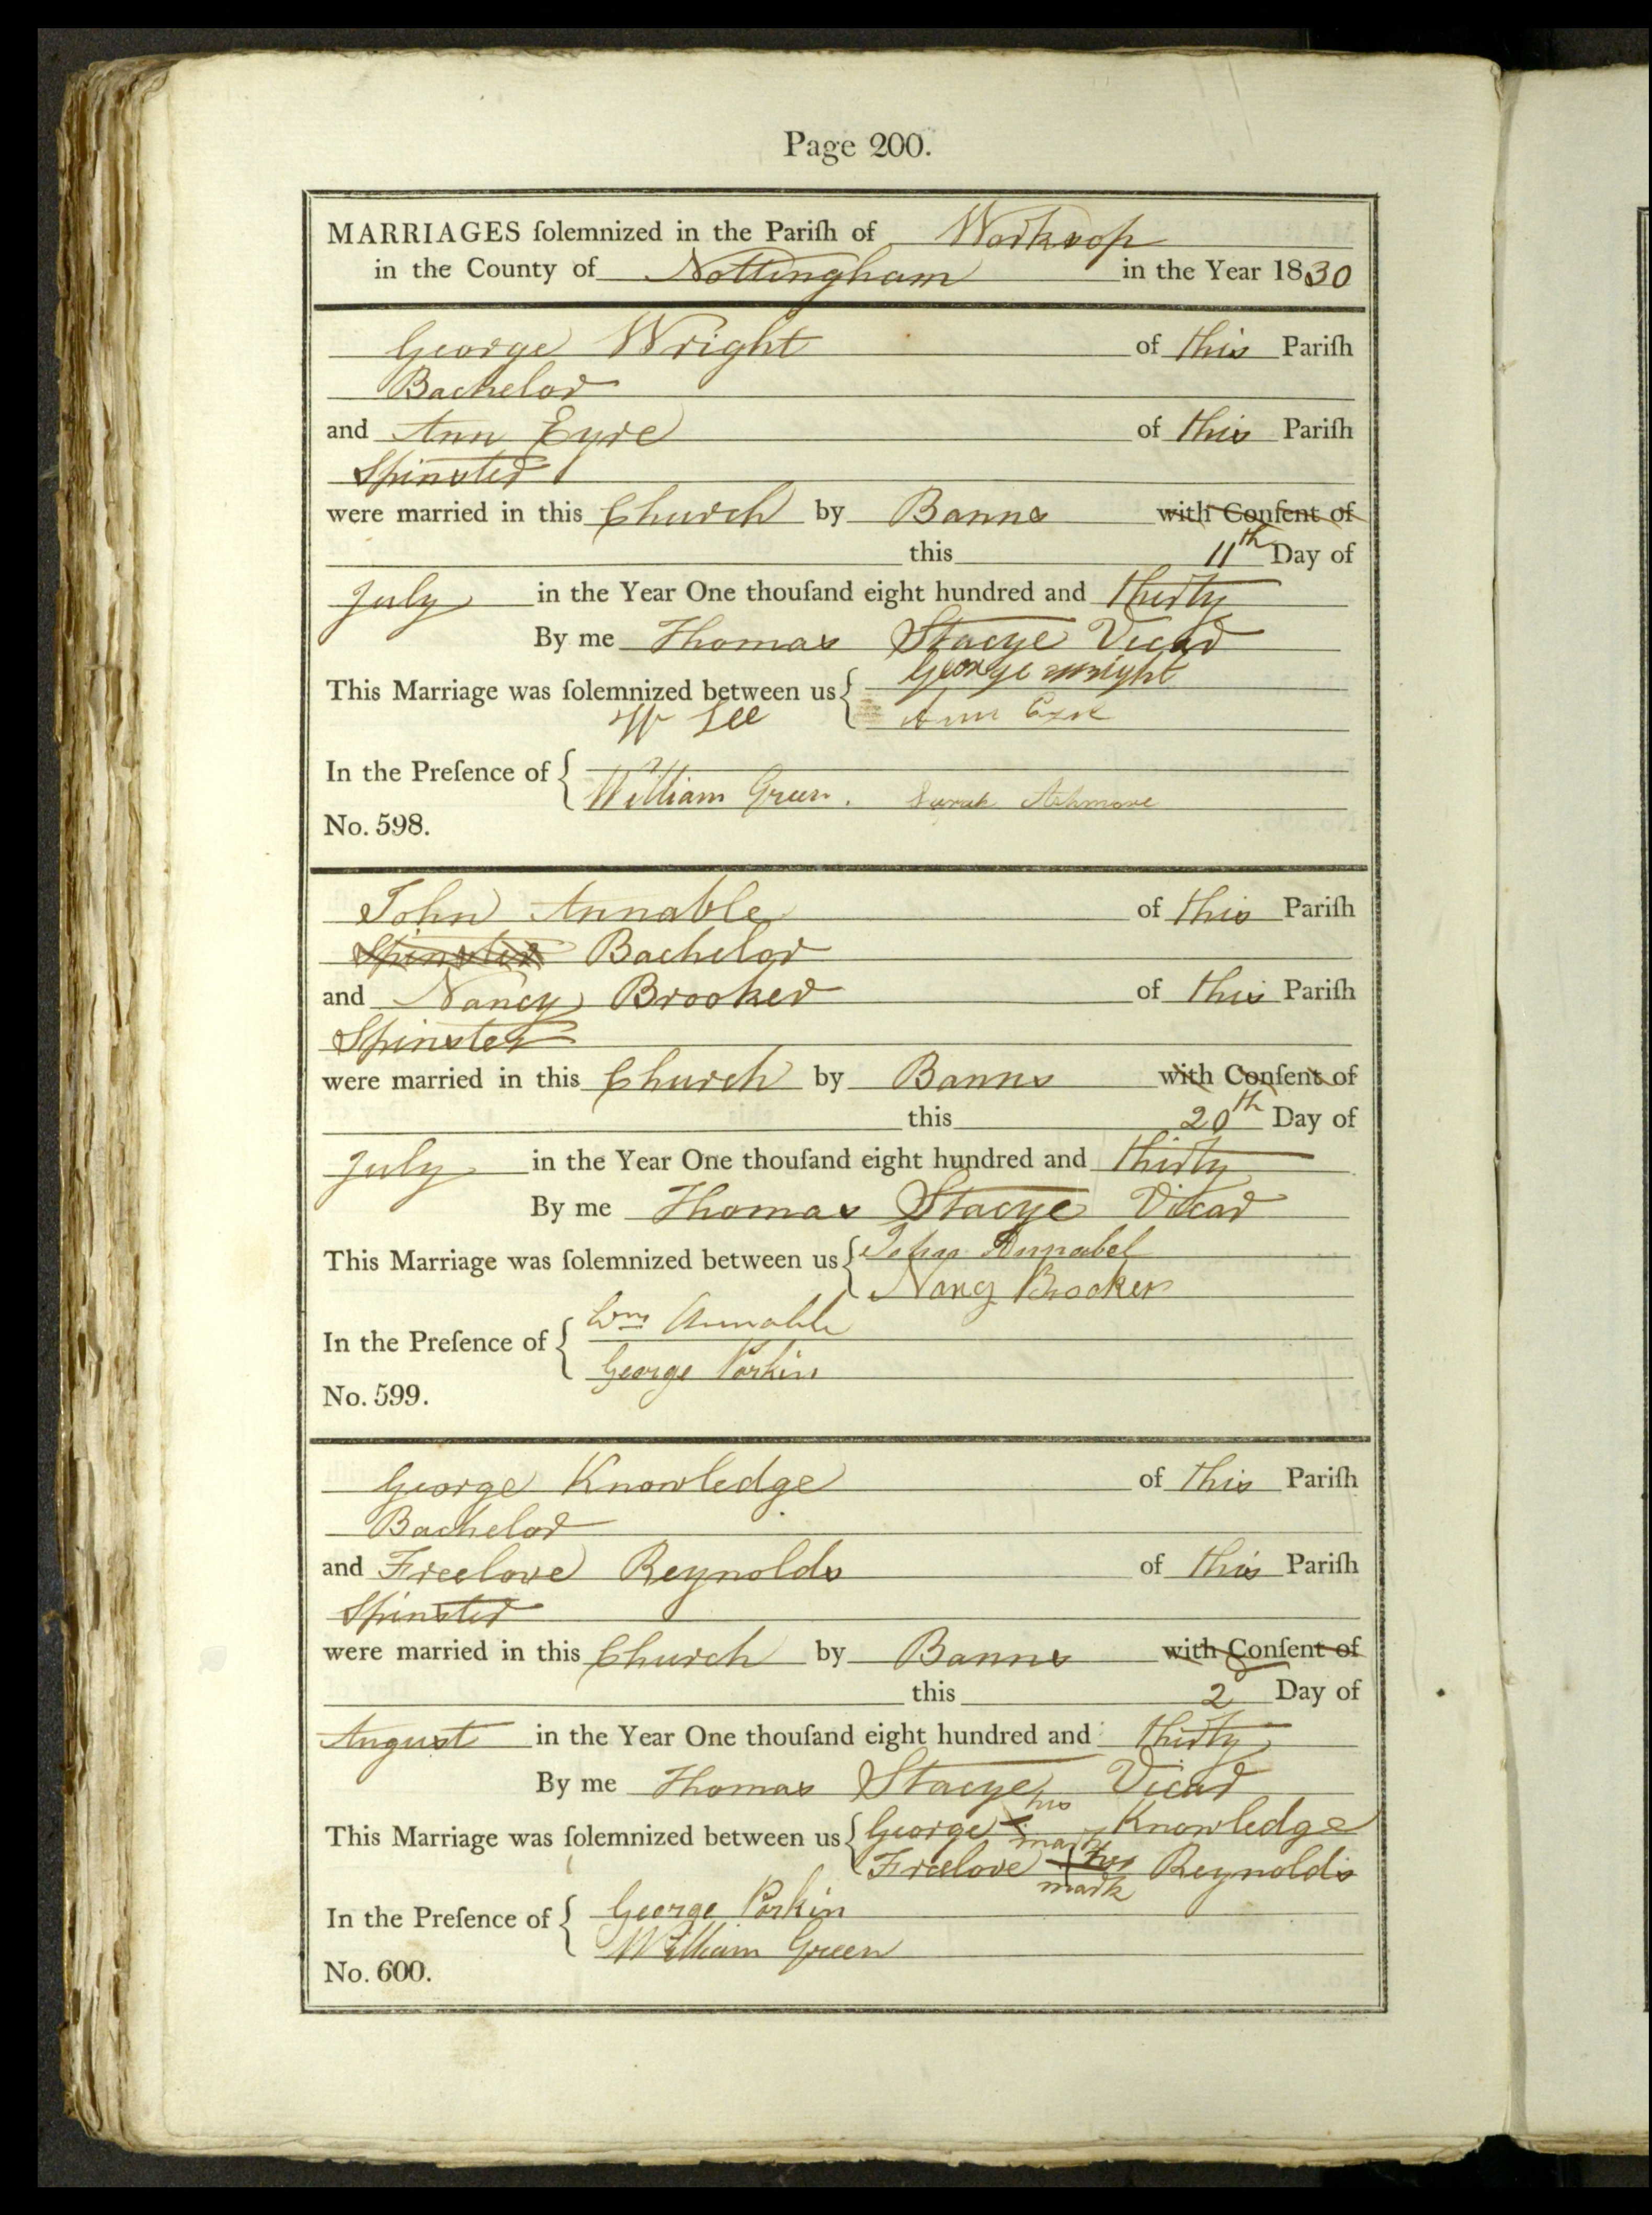 Page 200.
MARRIAGES ſolemnized in the Pariſh of Worksop
in the County of Nottingham in the Year 1830
George Wright of this Pariſh
Bachelor
and Ann Eyre of this Pariſh
Spinster
were married in this Church by Banns with Conſent of
this 11th Day of
July in the Year One thouſand eight hundred and thirty
By me Thomas Stacye Vicar
This Marriage was ſolemnized between us { George wright
W Lee Ann
In the Preſence of {
William Green. Sarah Ashmore
No. 598.
John Annable of this Pariſh
Spinster Bachelor
and Nancy Brooker of this Pariſh
Spinster
were married in this Church by Banns with Conſent of
this 20th Day of
July in the Year One thouſand eight hundred and thirty
By me Thomas Stacye Vicar
This Marriage was ſolemnized between us { John Annabel
Nancy Brooker
In the Preſence of { Wm Annable
George Parkin
No. 599.
George Knowledge of this Pariſh
Bachelor
and Freelove Reynolds of this Pariſh
Spinster
were married in this Church by Banns with Conſent of
this 2d Day of
August in the Year One thouſand eight hundred and thirty
By me Thomas Stacye Vicar
This Marriage was ſolemnized between us { George his x mark Knowledge
Freelove her mark Reynolds
In the Preſence of { George Parkin
William Green
No. 600.